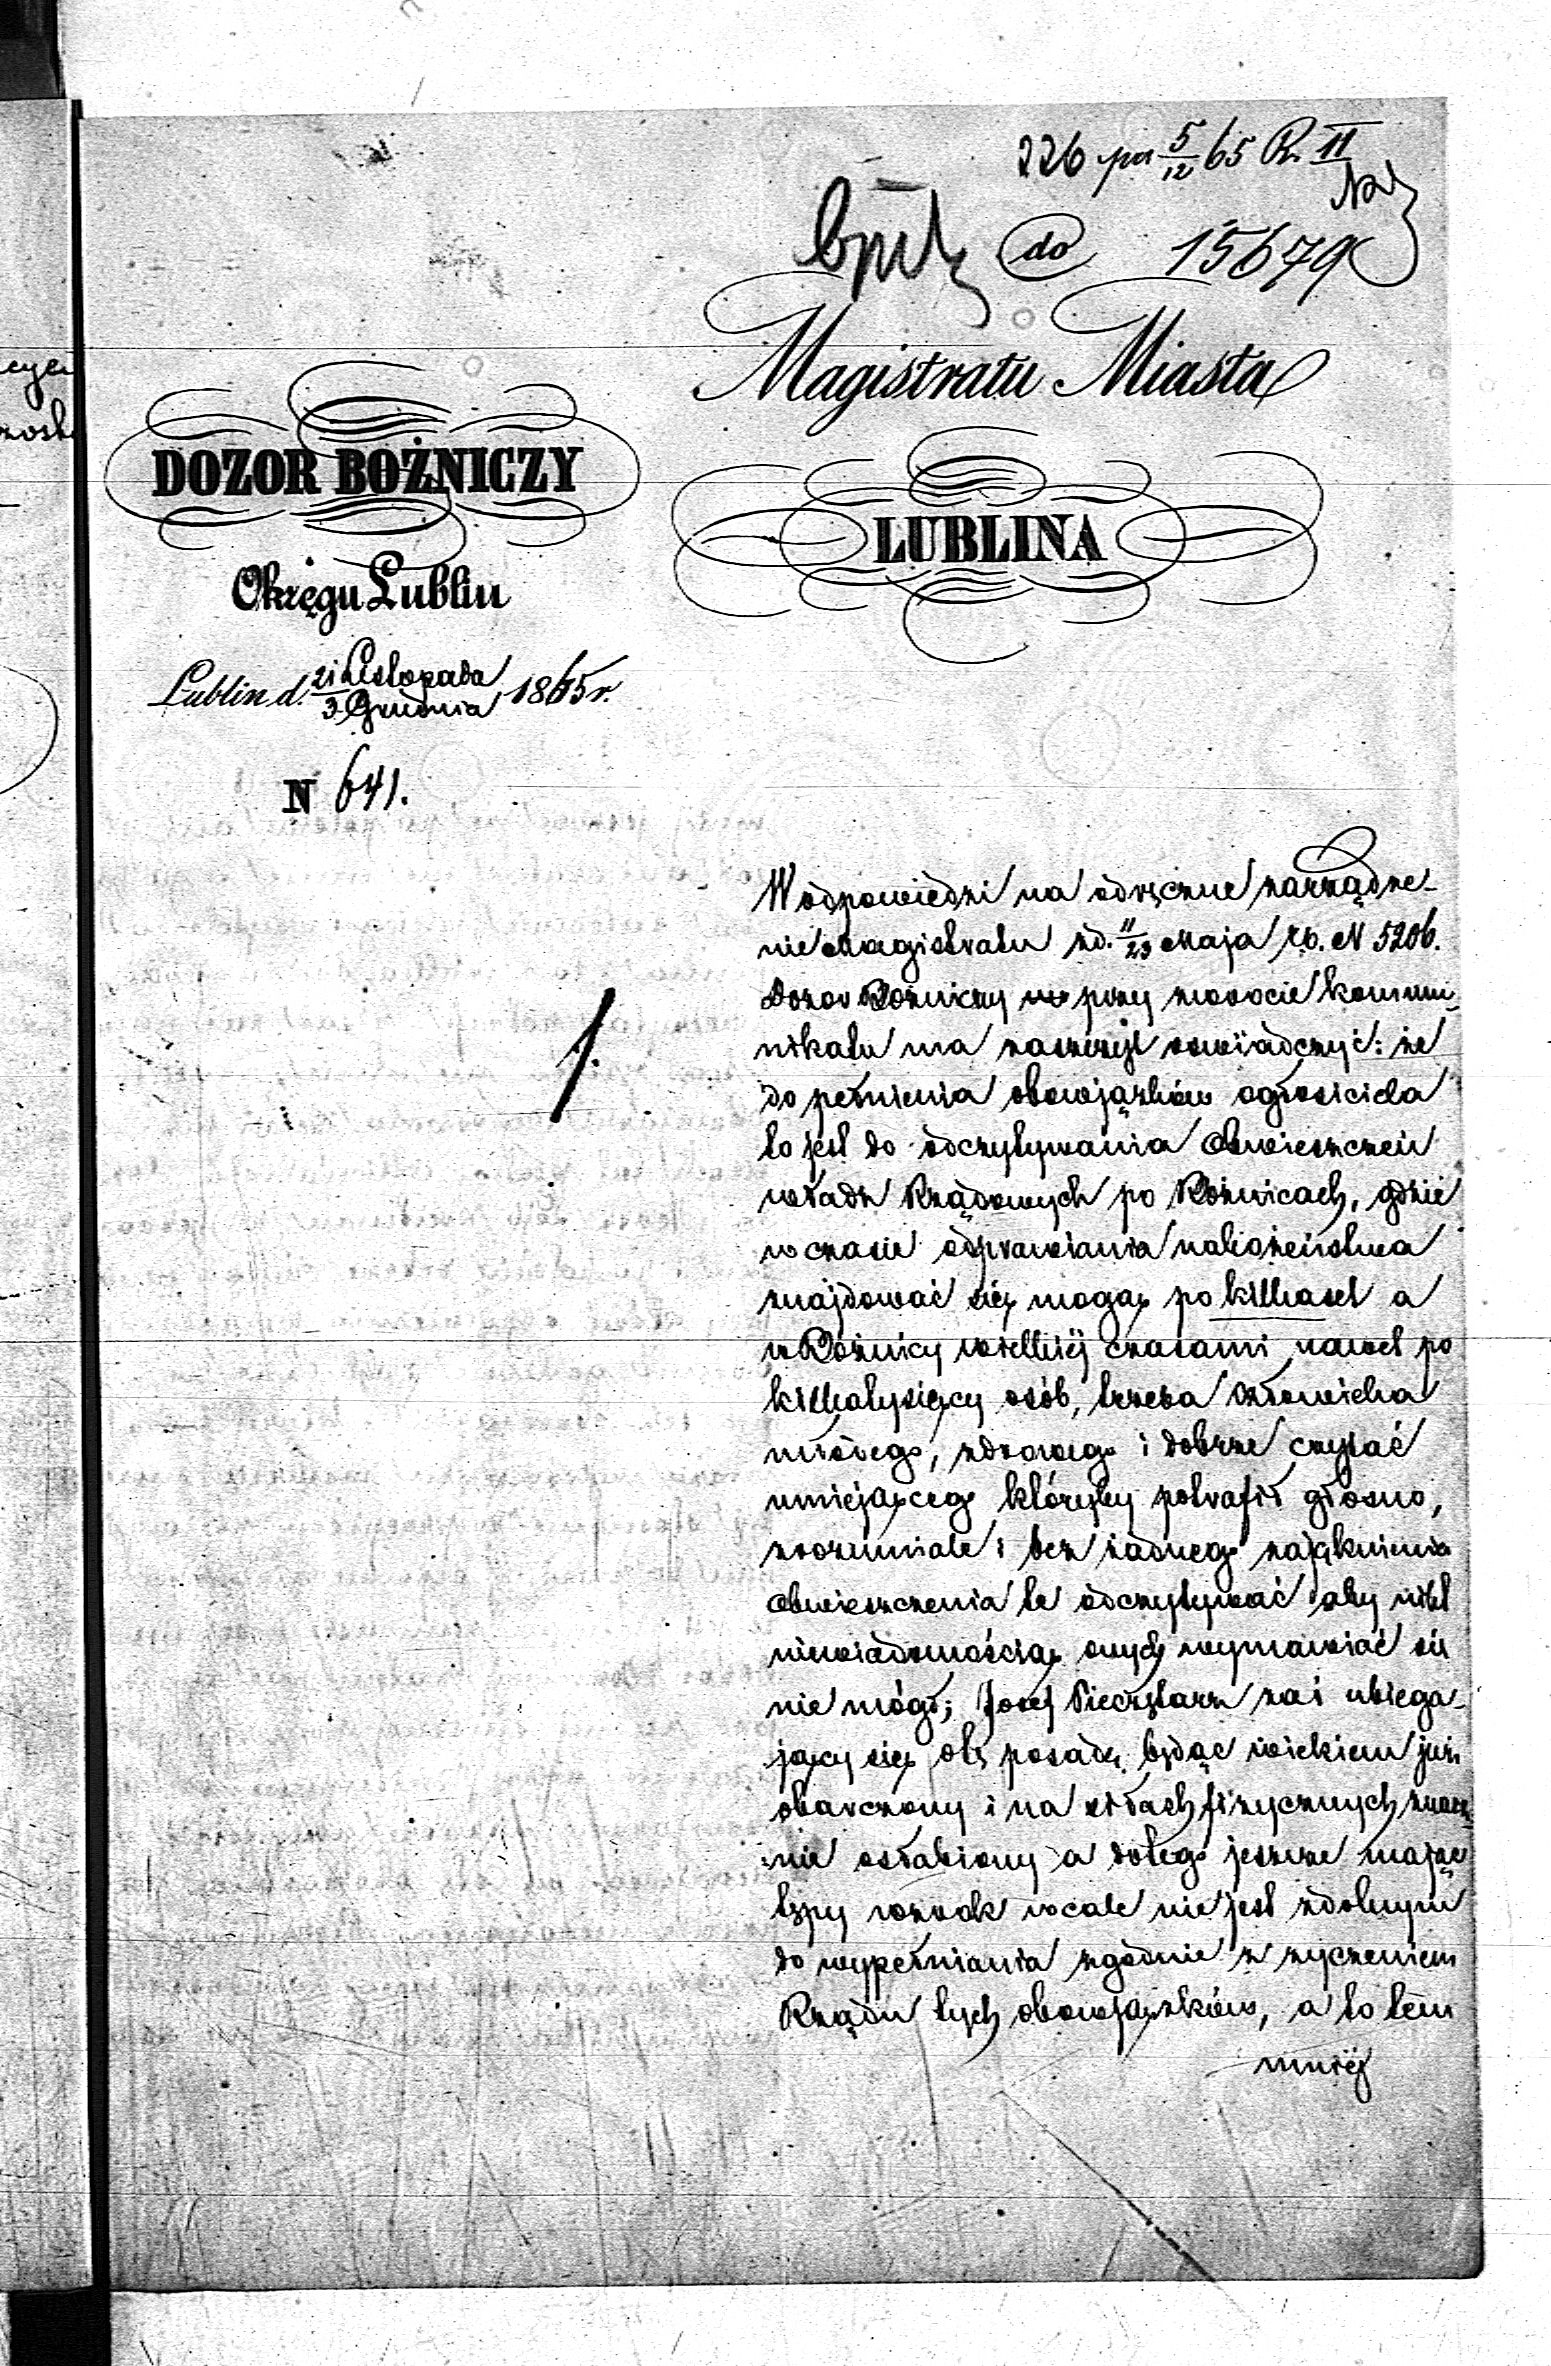 226 pr 5/12 65 R. II
do 15679
Magistratu Miasta
LUBLINA
DOZOR BOŻNICZY
Okręgu Lublin
Lublin d. 21 Listopada / 3 Grudnia 1865 r.
N 641.
1.
W odpowiedzi na odręczne zarządze-
nie Magistratu zd. 11/23 Maja rb. N 5206.
Dozor Bożniczy przy zwrocie kommu-
nikatu ma zaszczyt oswiadczyć: że
do pełnienia obowjązków ogłosiciela
to jest do odczytywania Obwieszczeń
władz Rządowych po Bożnicach, gdzie
w czasie odprawiania nabożeństwa
znajdować się mogą po kilkaset a
w Bożnicy wielkiéj czasami nawet po
kilkatysięcy osób, trzeba człowieka
młodego, zdrowego i dobrze czytać
umiejącego któryby potrafił głosno,
zrozumiale i bez żadnego zająknienia
obwieszczenia te odczytywać aby nikt
niewiadomością onych wymawiać się
nie mógł; Josef Pieczętarz zaś ubiega-
jący się o tę posadę, będąc wiekiem już
obarczony i na siłach fizycznych znacz-
nie osłabiony a dotego jeszcze mając
tępy wzrok wcale nie jest zdolnym
do wypełniania zgodnie z życzeniem
Rządu tych obowjązków, a to tém
mniéj